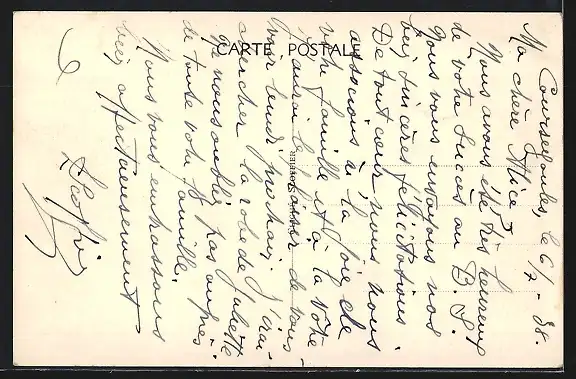 CARTE POSTALE
Courseboules, le 6/7 - 38.
Ma chère Alice
Nous avons été très heureux
de votre succès au B. S.
Nous vous envoyons nos
bien sincères félicitations
De tout cœur, nous nous
associons à la joie de
votre famille et à la vôtre
J'aurai le plaisir de vous
voir lundi prochain. J'irai
chercher la robe de Juliette
Ne nous oubliez pas auprès
de toute votre famille.
Nous vous embrassons
bien affectueusement